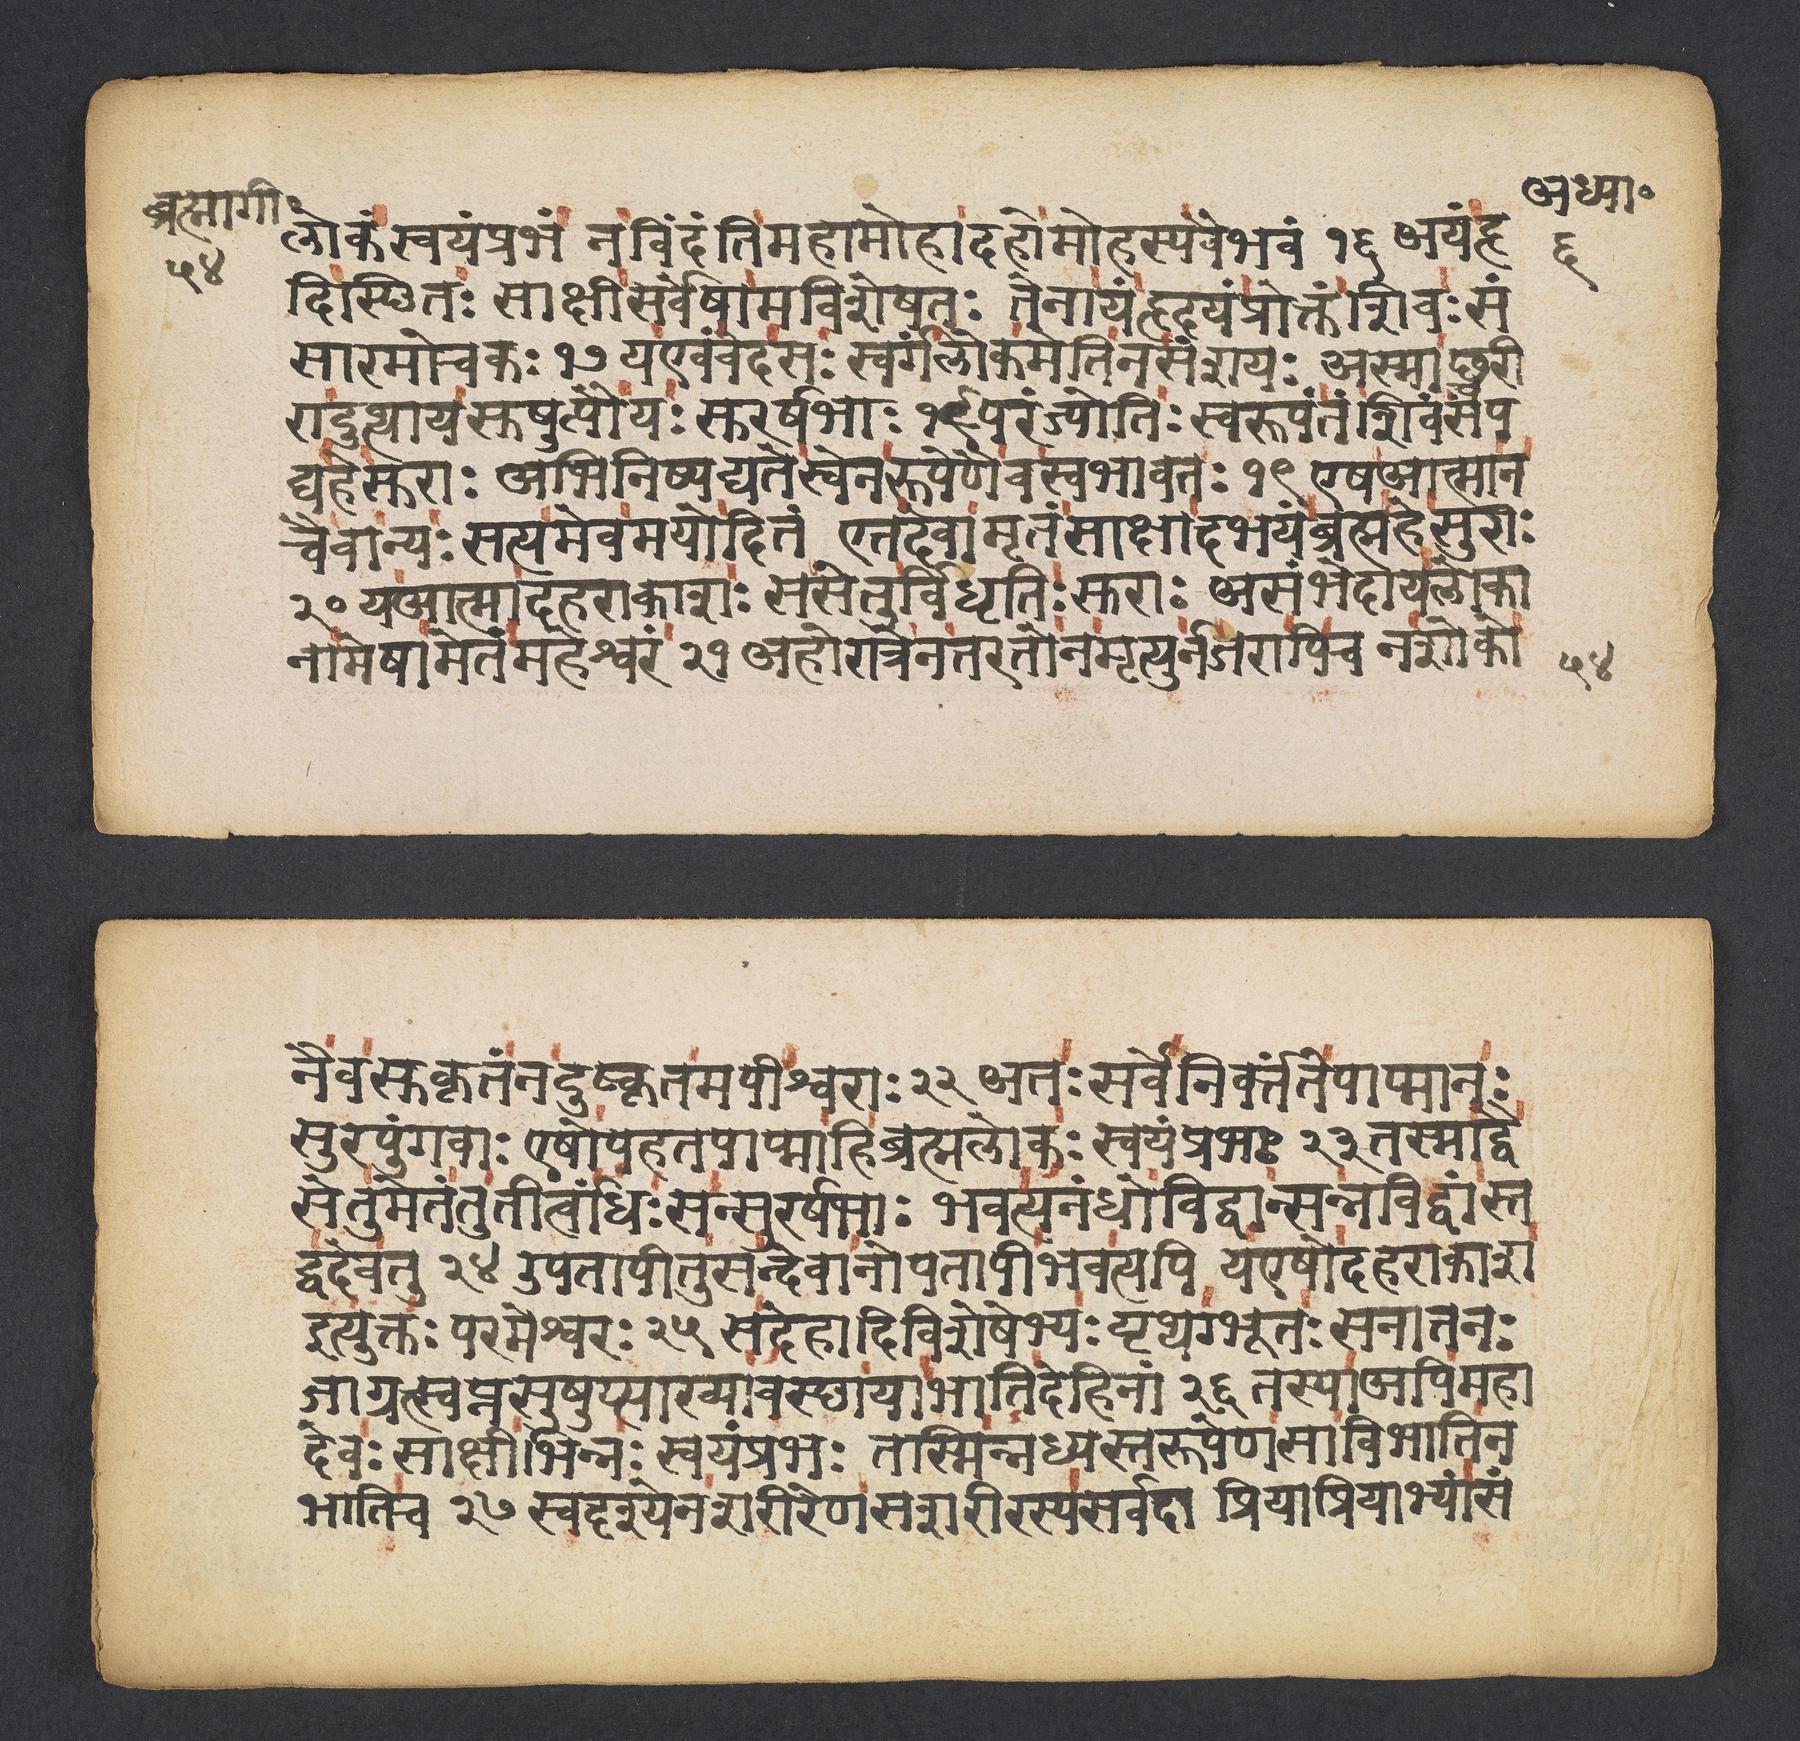 ब्रह्मागी॰
५४
अध्या॰
६
लोकं स्वयंप्रभं न विंदंति महामोहादहो मोहस्य वैभवं १६ अयं हृ
दि स्थितः साक्षी सर्वेषामविशेषतः तेनायं हृदयं प्रोक्तं शिवः सं
सारमोचकः १७ य एवं वेद सः स्वर्गं लोकमेति न संशयः अस्माच्छरी
रादुत्थाय सुषुप्तौ यः सुरर्षभाः १८ परं ज्योतिः स्वरूपं तं शिवं संप
द्य हे सुराः अभिनिष्पद्यते स्वेन रूपेणैव स्वभावतः १९ एष आत्मा न
चैवान्यः सत्यमेव मयोदितं एतदेवामृतं साक्षादभयं ब्रह्म हे सुराः
२० य आत्मा दहराकाशः स सेतुर्विधृतिः सुराः असंभेदाय लोका
नामेषामेतं महेश्वरं २१ अहोरात्रे न तरतो न मृत्युर्न जरापि च न शोको
५४
नैव सुकृतं न दुष्कृतमपीश्वराः २२ अतः सर्वे निवर्त्तंते पाप्मानः
सुरपुंगवाः एषोपहतपाप्मा हि ब्रह्मलोकः स्वयंप्रभः २३ तस्माद्वै
सेतुमेतं तु तीर्त्वांधिः सन्सुरर्षभाः भवत्यनंधो विद्वान्सन्नविद्वांस्त
द्वदेव तु २४ उपतापी तु सन्देवा नोपतापी भवत्यपि य एषो दहराकाश
इत्युक्तः परमेश्वरः २५ स देहादिविशेषेभ्यः पृथग्भूतः सनातनः
जाग्रत्स्वप्नसुषुप्त्याख्यावस्था या भाति देहिनां २६ तस्या अपि महा
देवः साक्षी भिन्नः स्वयंप्रभः तस्मिन्नध्यस्तरूपेण सा विभाति न
भाति च २७ स्वदृश्येन शरीरेण सशरीरस्य सर्वदा प्रियाप्रियाभ्यां सं